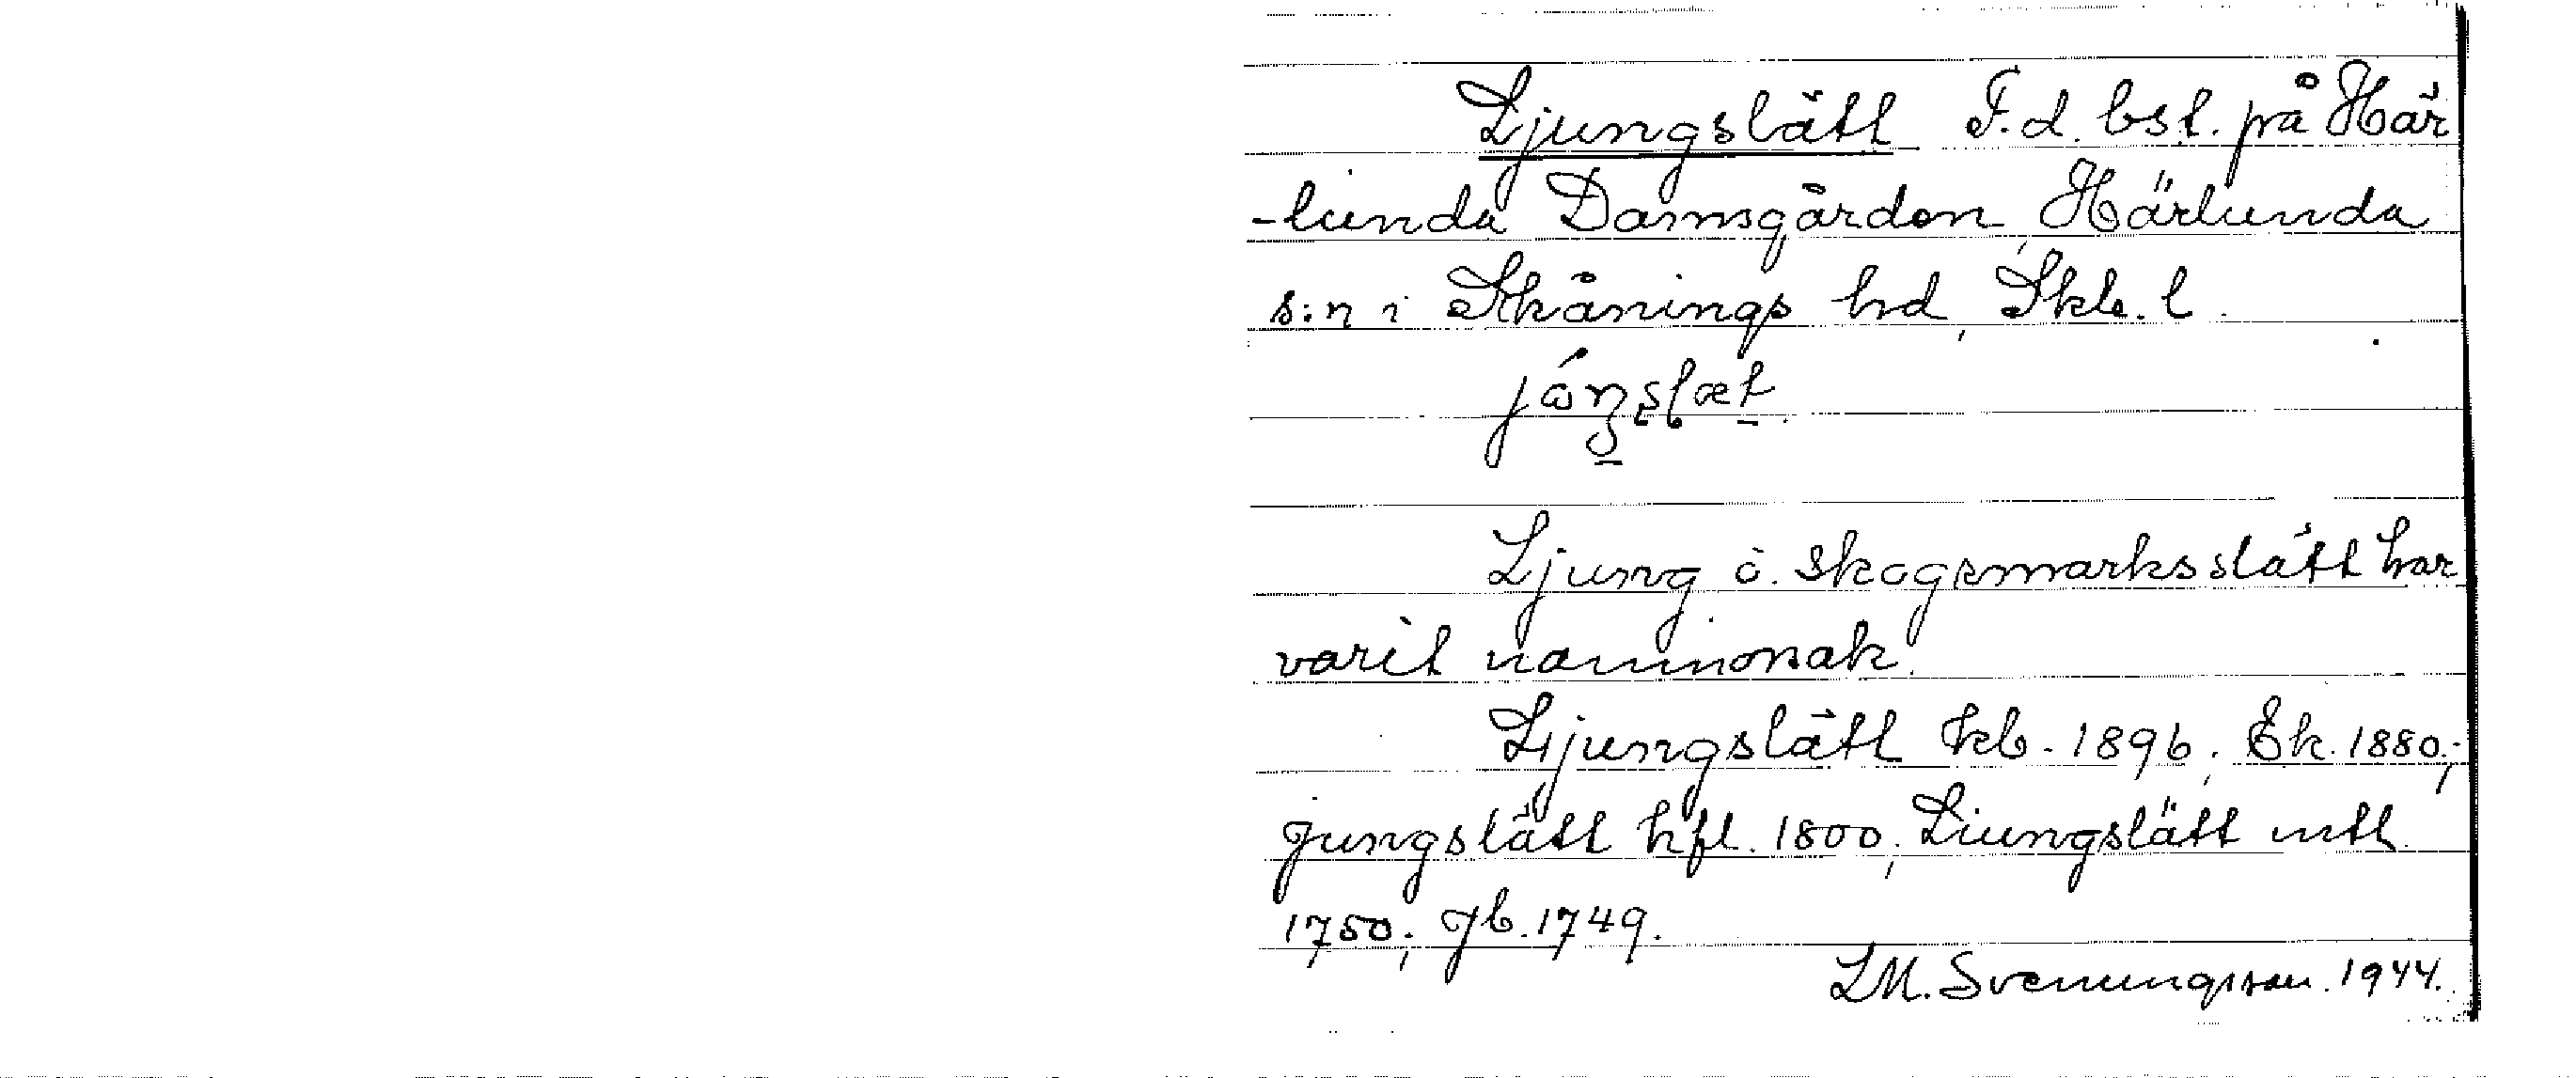 Ljungslätt F.d. bst. på Här
-lunda Damsgården, Härlunda
s:n i Skånings hd, Skb. l.
Ljung o. skogsmarksslätt har
varit namnorsak.
Ljungslätt kb. 1896; Ek. 1880;
Jungslätt hfl. 1800; Liungslätt mtl
1750; Jb. 1749.
LM. Svenungsson. 1944.